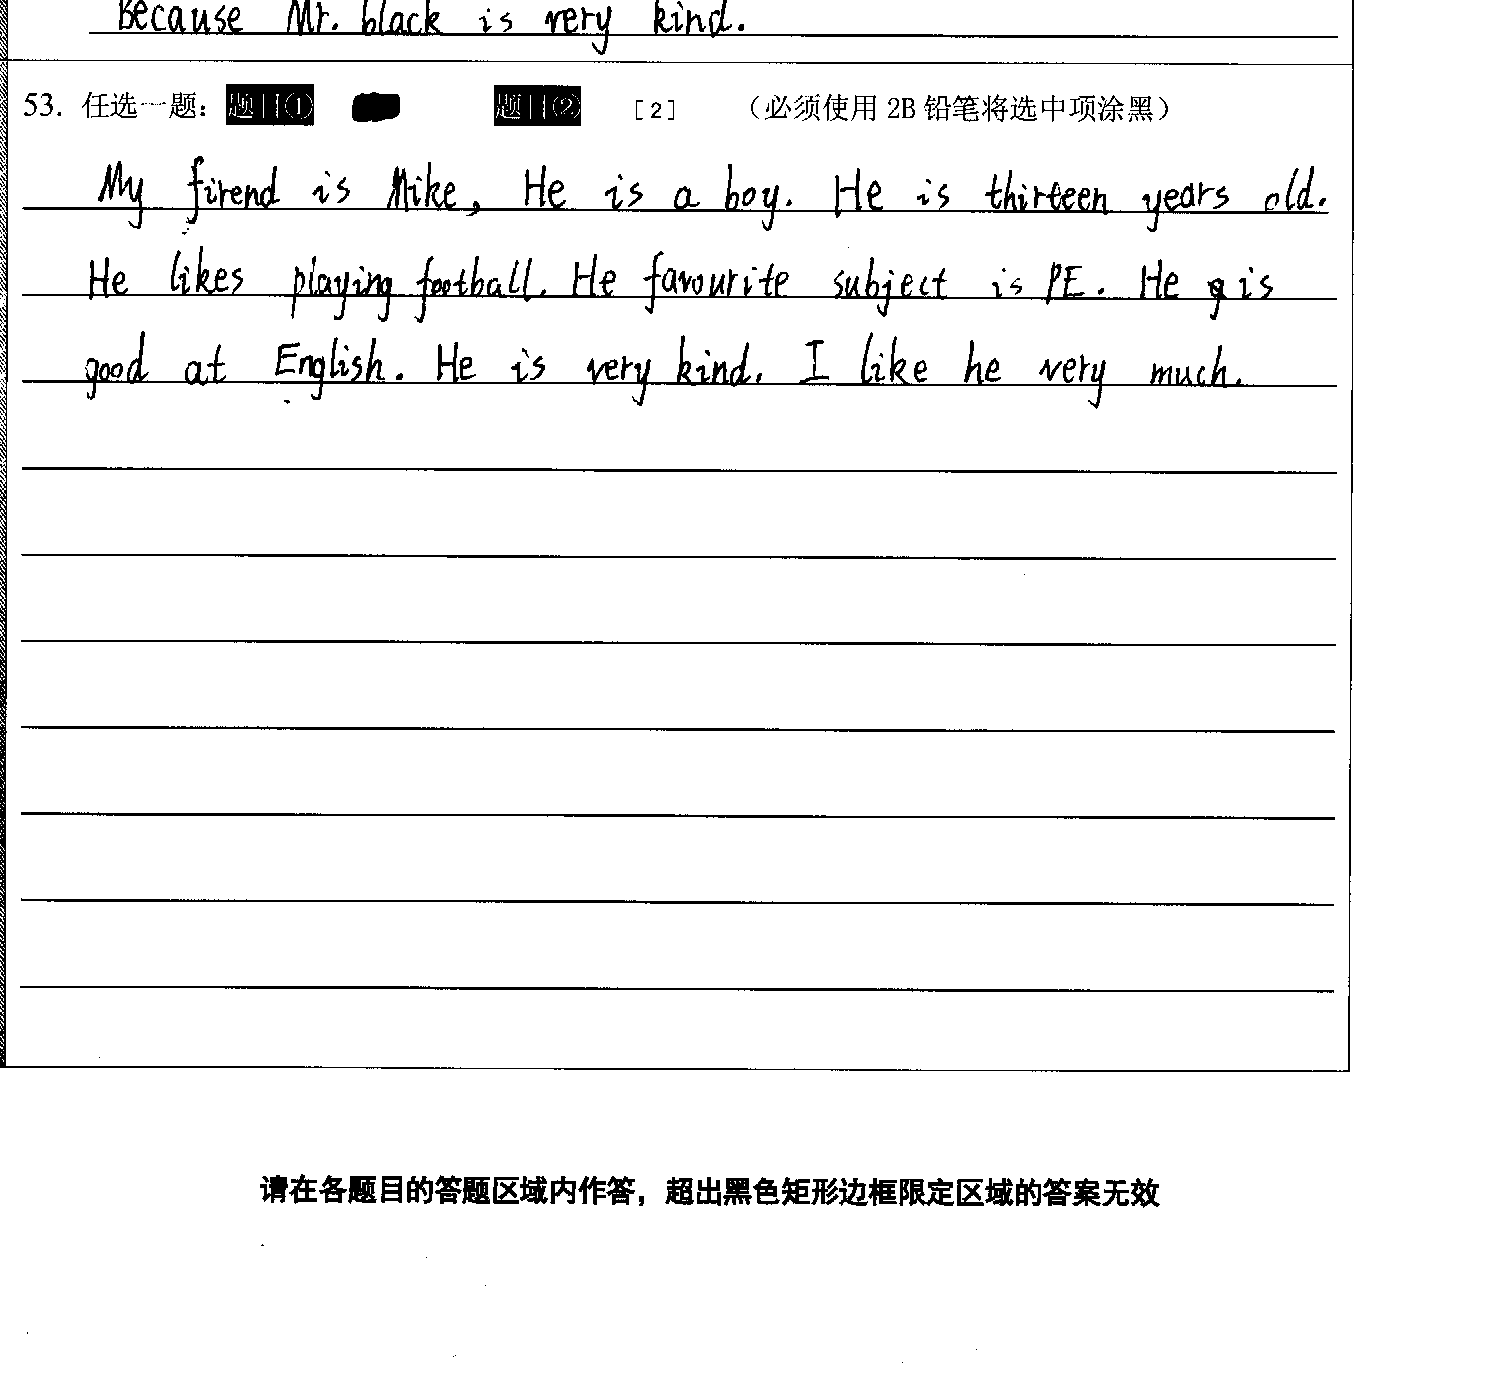 Because Mr. black is very kind.
53. 任选一题: 题目① 题目② [2] (必须使用 2B 铅笔将选中项涂黑)
My firend is Mike, He is a boy. He is thirteen years old.
He likes playing football. He favourite subject is PE. He is
good at English. He is very kind. I like he very much.
请在各题目的答题区域内作答，超出黑色矩形边框限定区域的答案无效